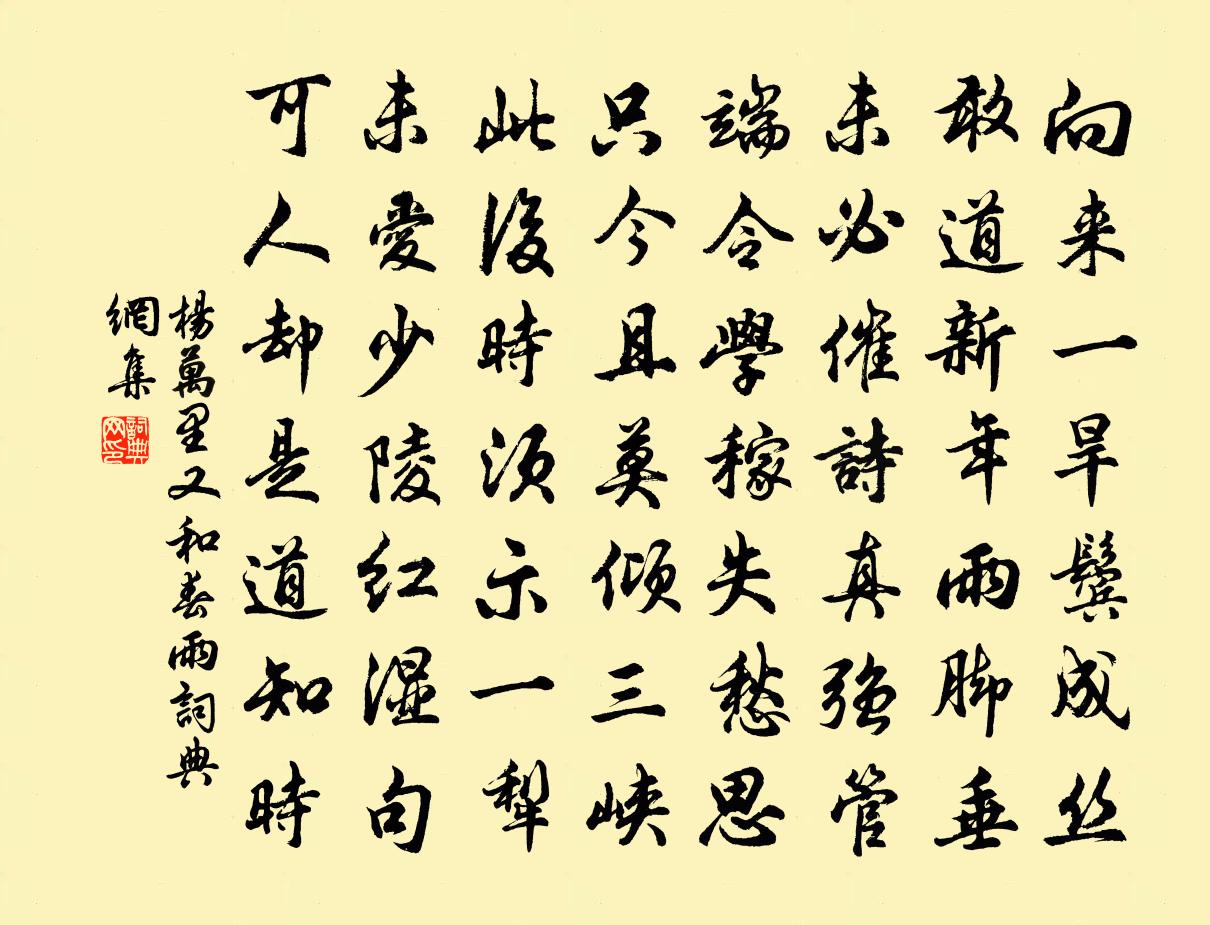 向来一旱鬢成丝
敢道新年雨脚垂
未必催詩真强管
端令學稼失愁思
只今且莫傾三峡
此後時須示一犁
未愛少陵紅湿句
可人却是道知時
楊萬里又和春雨詞典
網集
詞典
网印